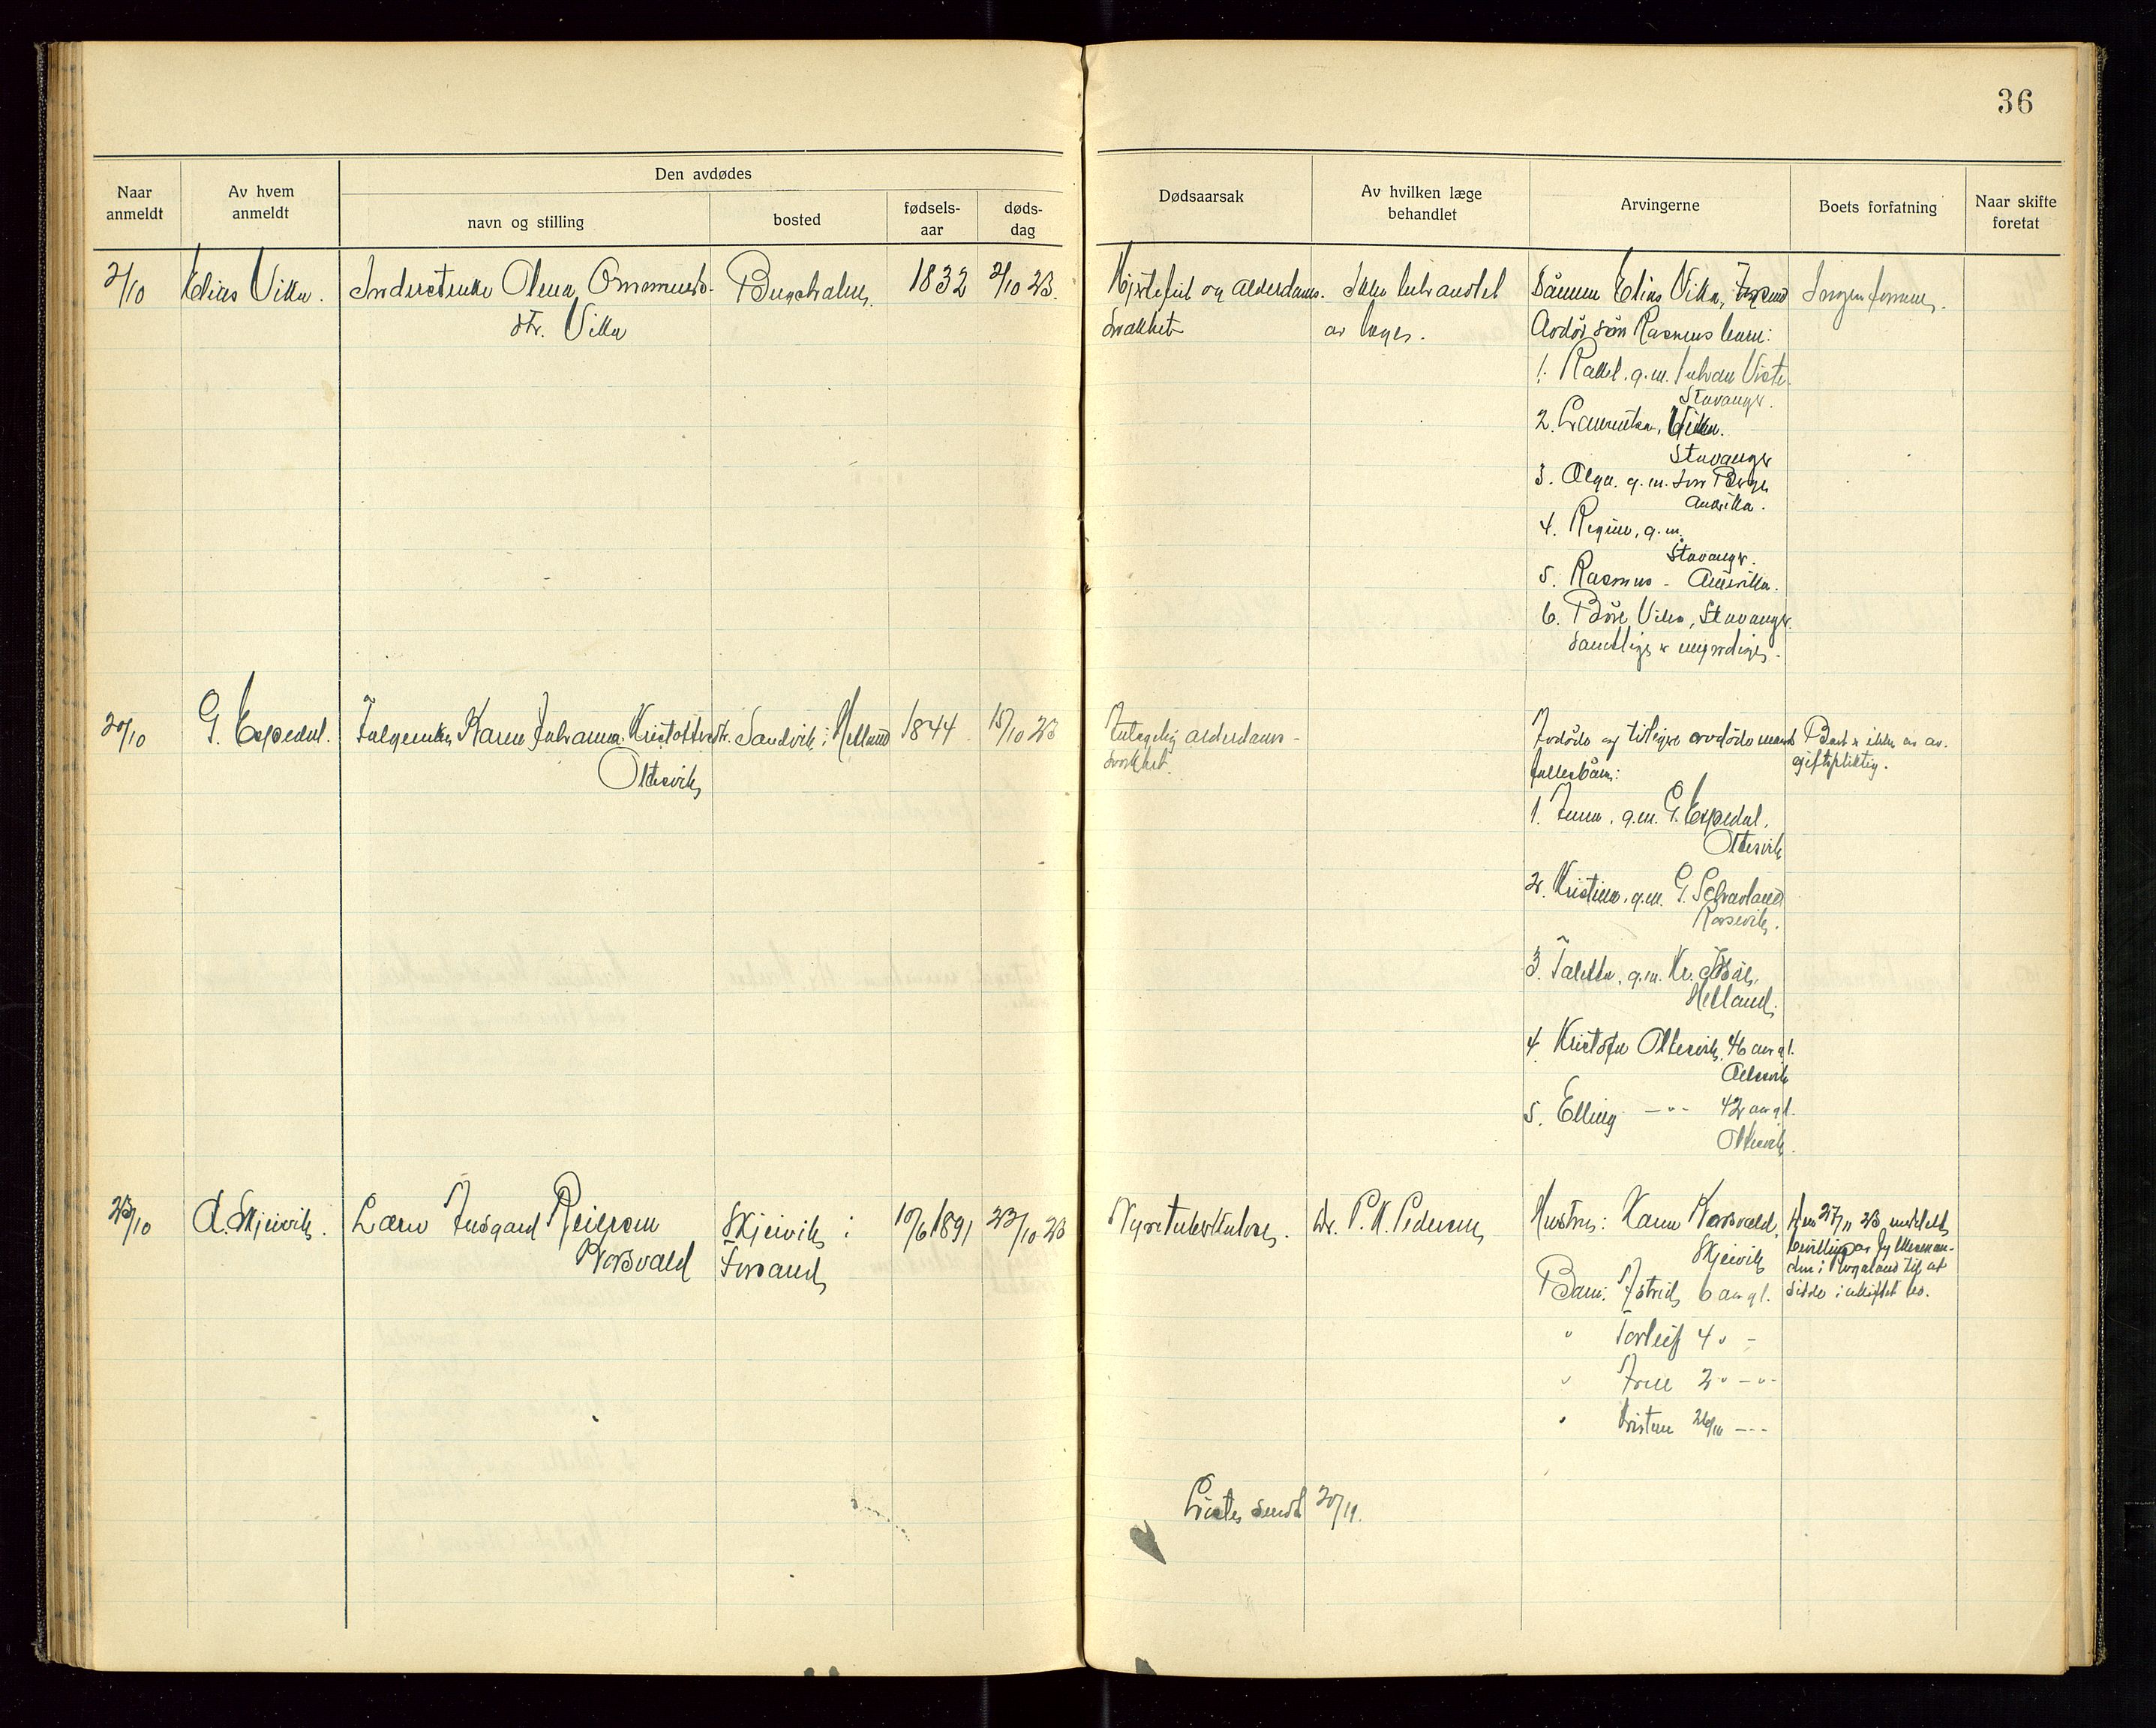 36
Naar anmeldt
Av hvem anmeldt
Den avdødes
navn og stilling
bosted
fødsels-aar
døds-dag
Dødsaarsak
Av hvilken læge behandlet
Arvingerne
Boets forfatning
Naar skifte foretat
2/10
Elias Vika.
Inderstenke Olena Ommunds-
dtr. Vika
1832
2/10 23.
Hjertefeil og alderdoms-
svakhet
Ikke behandlet
av læge.
Sønnen Elias Vika,
Avdøt søn Rasmus barn:
1. Rakel. g.m. Johan Viste
Stavanger.
2. Laurentse, Vika.
Stavanger
3. Olga. g.m. Berge
Amerika.
4. Regine, g.m.
Stavanger.
5. Rasmus - Amerika.
6. Bår Vika, Stavanger.
Samtlige er myndige.
Ingen formue.
20/10
G. Espedal.
Karen Johanna Kristoffersdtr.
Oltesvik
Sandvik i Helland
1844
15/10 23
alderdoms-
svakhet.
Avdøde og tidligere avdøde mands
fællesbarn:
1. Anna, g.m. G. Espedal,
Oltesvik
2. Kristina, g.m. G. Selvavland
3. Taletta, g.m. Kr.
Helland.
4. Kristofer Oltesvik, 46 aar gl.
Oltesvik
5. Elling -"- 42 aar gl.
Oltesvik.
Boet er ikke av av-
giftspliktig.
23/10
A. Skjeivik.
Lærer Reierson
Norsvald
Skjeivik i
Forsand
10/6 1891
23/10 23
Nyretuberkulose.
Dr. P. K. Pedersen
Hustru: Karen Norsvald,
Skjeivik
Barn: Astrid 6 aar gl.
" Torleif 4 " -
" Arne 2 " - " -
" Kristen
Den 27/11 23 meddelt
bevilling av fylkesman-
den i Rogaland til at
sidde i uskiftet bo.
Liste sendt 20/11.